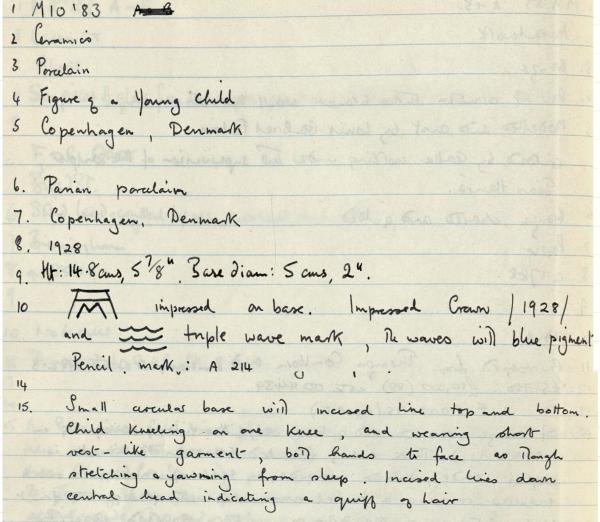 1 M10 '83
2 Ceramics
3 Porcelain
4 Figure of a Young Child
5 Copenhagen, Denmark
6. Parian porcelain
7. Copenhagen, Denmark
8. 1928
9. Ht: 14.8 cms, 5 7/8". Base diam: 5 cms, 2".
10 impressed on base. Impressed Crown /1928/
and triple wave mark, the waves with blue pigment
Pencil mark: A 214
14
15. Small circular base with incised line top and bottom.
Child kneeling on one knee, and wearing short
vest-like garment both hands to face as though
stretching & yawning from sleep. Incised lines down
central head indicating a quiff of hair